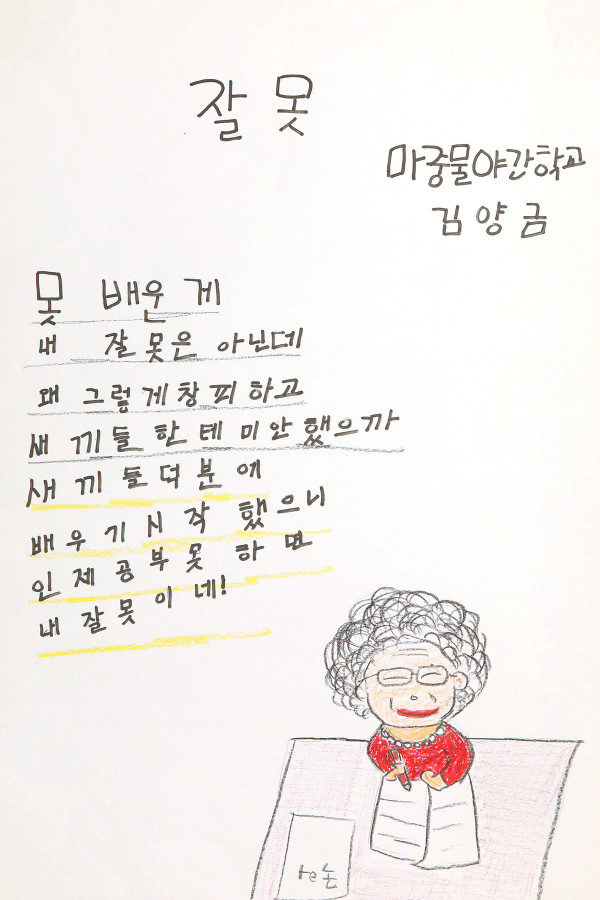 잘 못
마중물야간학교
김 양 금
못 배운 게
내 잘 못은 아닌데
왜 그렇게 창 피 하 고
새 끼 들 한 테 미 안 했 으 까
새 끼 들 덕 분 에
배 우 기 시 작 했 으 니
인 제 공 부 못 하 면
내 잘 못 이 네!